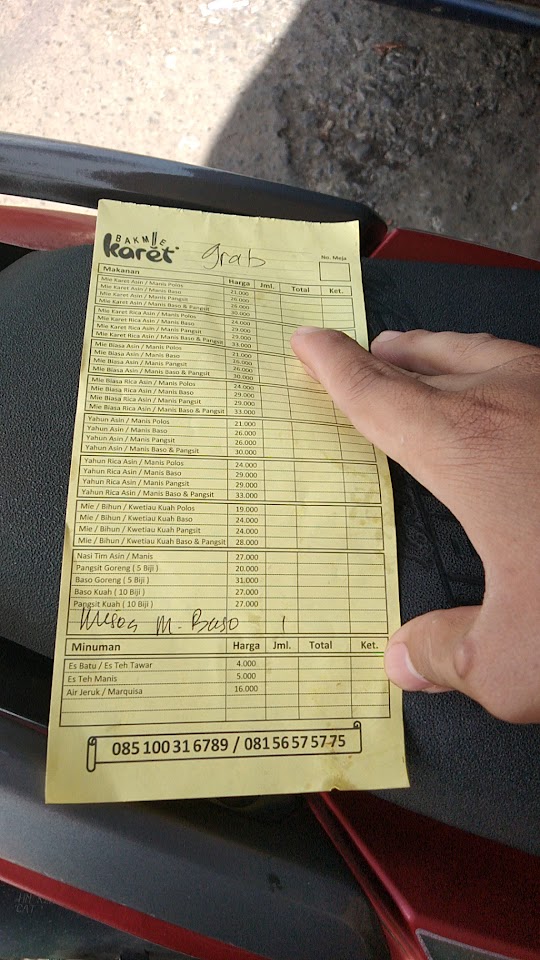 BAKMIE
Karet
grab
No. Meja
Makanan Harga Jml. Total Ket.
Mie Karet Asin / Manis Polos 21.000
Mie Karet Asin / Manis Baso 26.000
Mie Karet Asin / Manis Pangsit 26.000
Mie Karet Asin / Manis Baso & Pangsit 30.000
Mie Karet Rica Asin / Manis Polos 24.000
Mie Karet Rica Asin / Manis Baso 29.000
Mie Karet Rica Asin / Manis Pangsit 29.000
Mie Karet Rica Asin / Manis Baso & Pangsit 33.000
Mie Biasa Asin / Manis Polos 21.000
Mie Biasa Asin / Manis Baso 26.000
Mie Biasa Asin / Manis Pangsit 26.000
Mie Biasa Asin / Manis Baso & Pangsit 30.000
Mie Biasa Rica Asin / Manis Polos 24.000
Mie Biasa Rica Asin / Manis Baso 29.000
Mie Biasa Rica Asin / Manis Pangsit 29.000
Mie Biasa Rica Asin / Manis Baso & Pangsit 33.000
Yahun Asin / Manis Polos 21.000
Yahun Asin / Manis Baso 26.000
Yahun Asin / Manis Pangsit 26.000
Yahun Asin / Manis Baso & Pangsit 30.000
Yahun Rica Asin / Manis Polos 24.000
Yahun Rica Asin / Manis Baso 29.000
Yahun Rica Asin / Manis Pangsit 29.000
Yahun Rica Asin / Manis Baso & Pangsit 33.000
Mie / Bihun / Kwetiau Kuah Polos 19.000
Mie / Bihun / Kwetiau Kuah Baso 24.000
Mie / Bihun / Kwetiau Kuah Pangsit 24.000
Mie / Bihun / Kwetiau Kuah Baso & Pangsit 28.000
Nasi Tim Asin / Manis 27.000
Pangsit Goreng ( 5 Biji ) 20.000
Baso Goreng ( 5 Biji ) 31.000
Baso Kuah ( 10 Biji ) 27.000
Pangsit Kuah ( 10 Biji ) 27.000
M. Baso 1
Minuman Harga Jml. Total Ket.
Es Batu / Es Teh Tawar 4.000
Es Teh Manis 5.000
Air Jeruk / Marquisa 16.000
085 100 31 6789 / 081 56 57 57 75